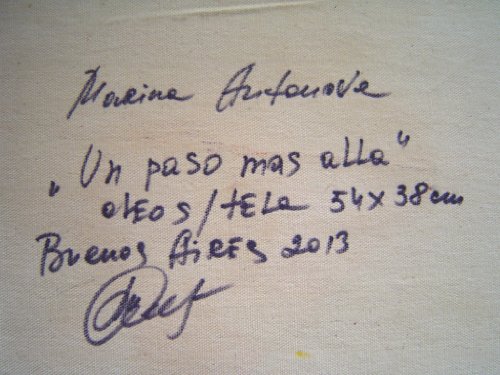 Marina Antonova
„Un paso mas alla"
oleos/tela 54x38cm
Buenos Aires 2013